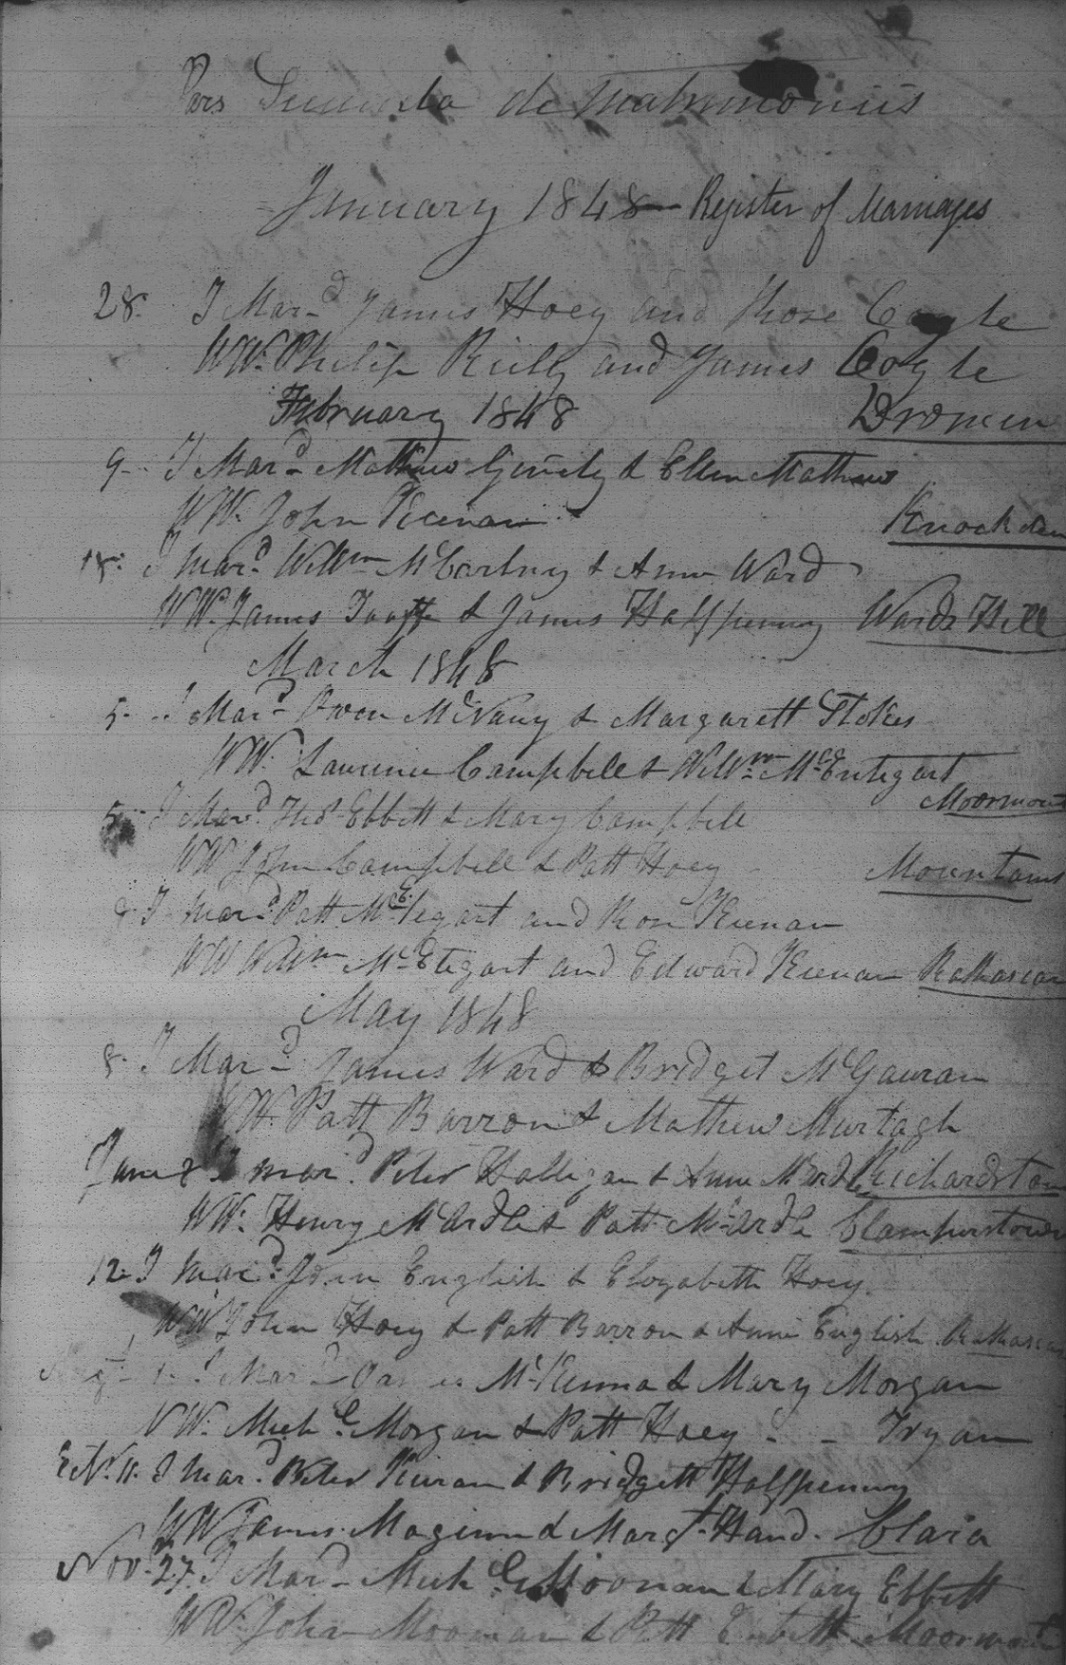 Pars Secunda de Matrimoniis
January 1848 - Register of Marriages
28. I Mard James Hoey and Rose Coyle
WW. Philip Reilly and James Coyle
February 1848 Dromin
9 - I Mard Mathew Gernty & Ellen Mathews
WW. John Keenan Knock
18. I mard Willm McCartny & Anne Ward
WW. James Taaffe & James Halfpenny Wards Hill
March 1848
5 - I Mard Owen McVany & Margarett Stokes
WW. Laurence Campbell & Willm McEntegart
Moormount
5 - I Mard Thos Ebbitt & Mary Campbell
WW John Campbell & Patt Hoey Mountains
I mard Patt McEtegart and Rose Keenan
WW Willm McEtegart and Edward Keenan
May 1848
8. I Mard James Ward & Bridget McGauran
WW. Patt Barron & Mathew Murtagh
June 8 I mard Peter Halligan & Anne McArdle Richardstown
WW. Henry McArdle & Patt McArdle Clamperstown
12. I mard John English & Elizabeth Hoey.
WW John Hoey & Patt Barron & Anne English
I Mard James McKenna & Mary Morgan
WW. Michl Morgan & Patt Hoey - - Iryan
11. I Mard Peter Kieran & Bridgett Halfpenny
WW James Maginn & Margt Hand. Claia
Nov. 27. I Mard Michl Moonan & Mary Ebbitt
WW. John Moonan & Patt Moormount